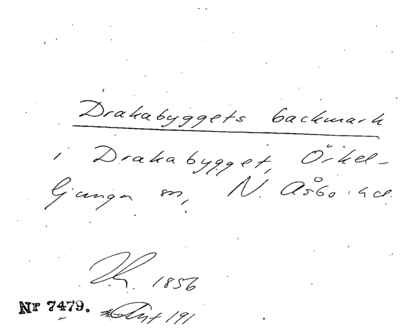 Drakabyggets backmark
i Drakabygget, Örkel-
ljunga sn, N. Åsbo hd.
1856
Nr 7479. Ant 191